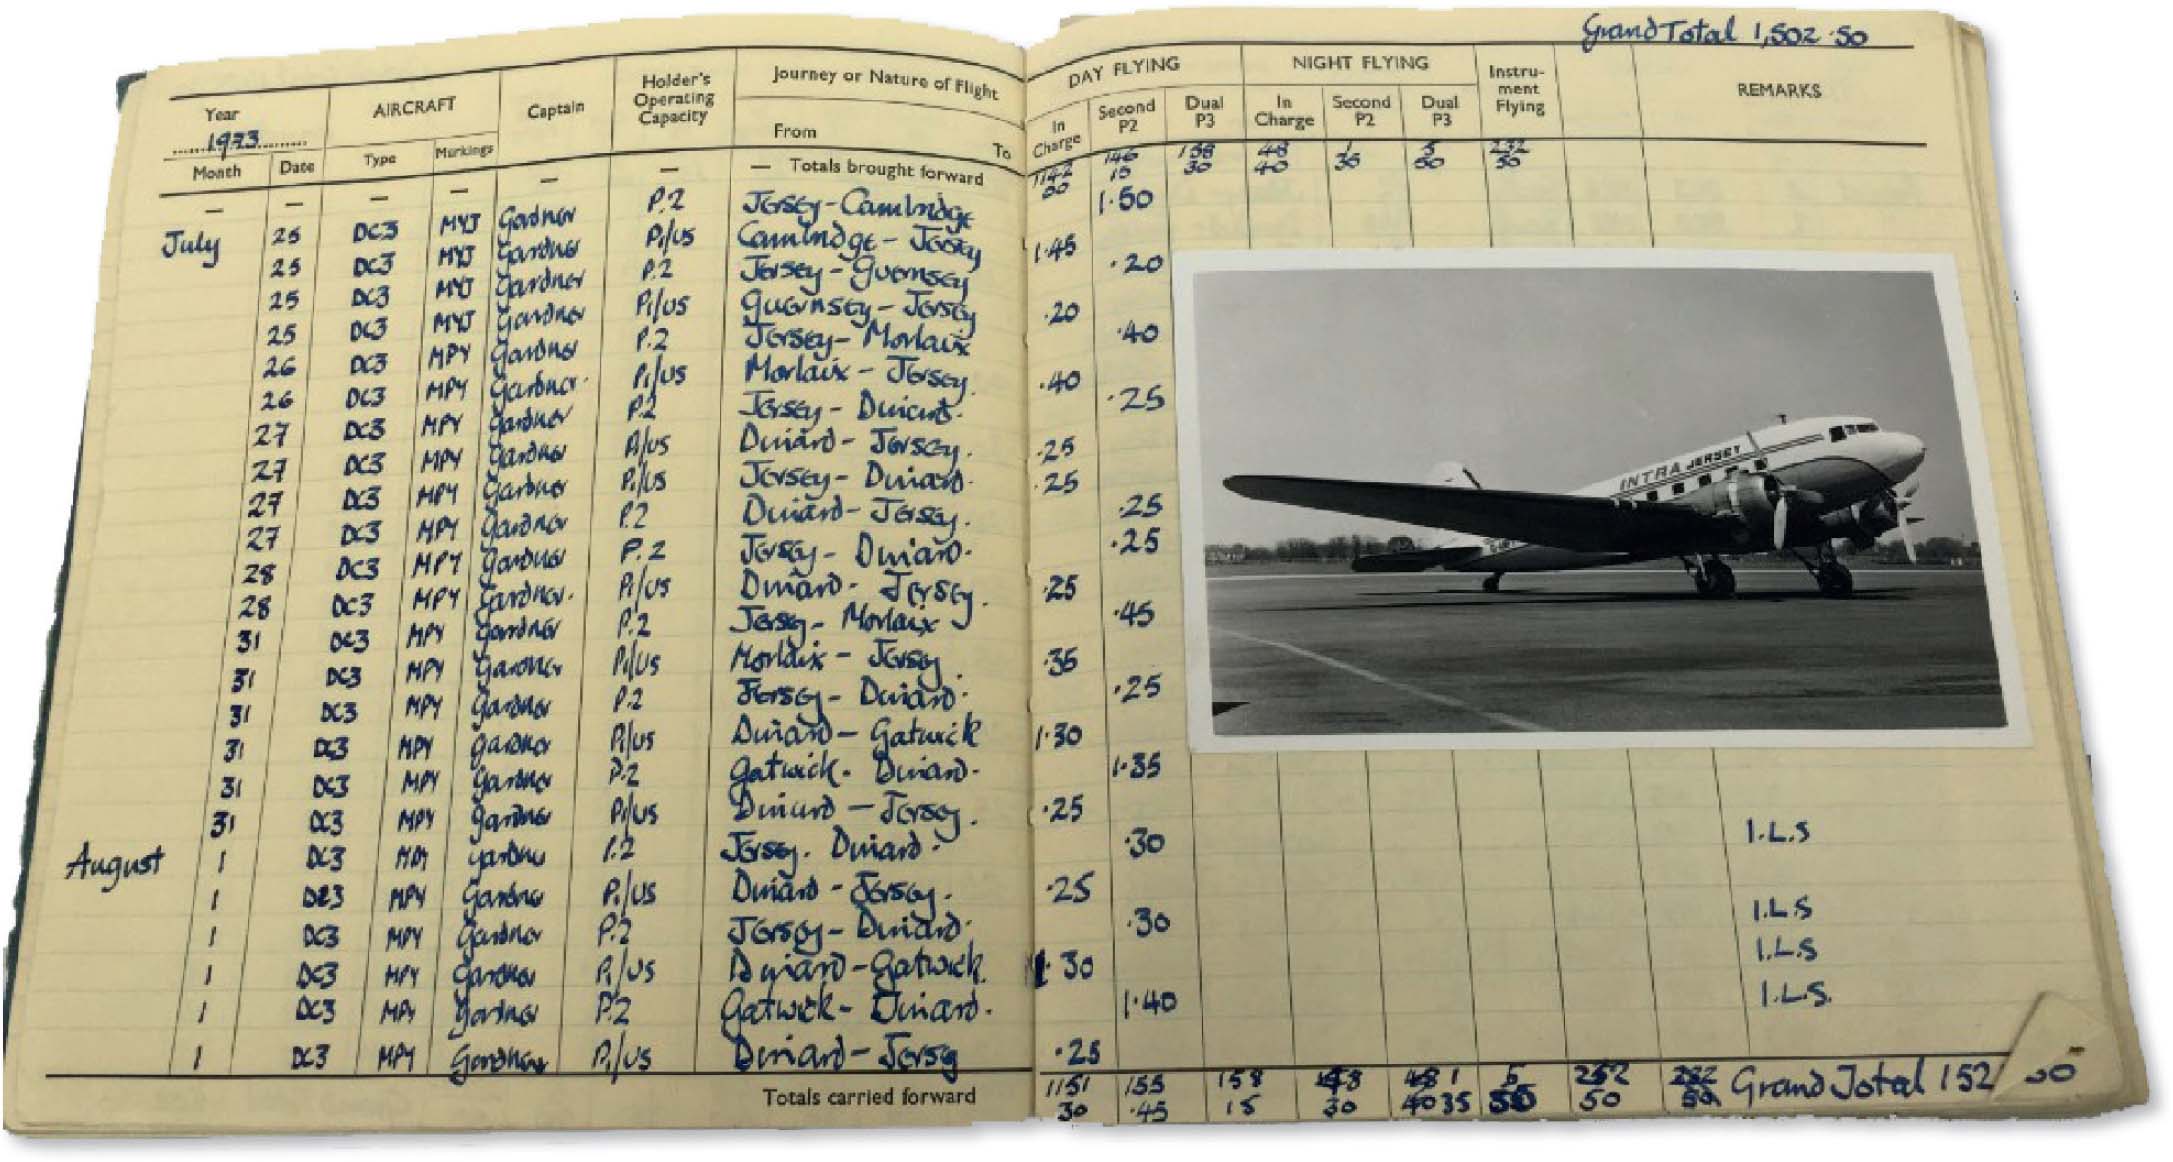 Grand Total 1,502.50
Year 1973 AIRCRAFT Captain Holder's Operating Capacity Journey or Nature of Flight DAY FLYING NIGHT FLYING Instru-ment Flying REMARKS
Month Date Type Markings From To In Charge Second P2 Dual P3 In Charge Second P2 Dual P3
— — — — — — — Totals brought forward 1142 50 146 15 158 30 48 40 1 35 5 50 232 50
July 25 DC3 MYJ Gardner P.2 Jersey-Cambridge 1.50
25 DC3 MYJ Gardner P1/us Cambridge-Jersey 1.45
25 DC3 MYJ Gardner P.2 Jersey-Guernsey .20
25 DC3 MYJ Gardner P1/us Guernsey-Jersey .20
26 DC3 MPY Gardner P.2 Jersey-Morlaix .40
26 DC3 MPY Gardner. P1/us Morlaix - Jersey. .40
27 DC3 MPY Gardner P.2 Jersey - Dinard. .25
27 DC3 MPY Gardner P1/us Dinard- Jersey. .25
27 DC3 MPY Gardner P1/us Jersey- Dinard. .25
27 DC3 MPY Gardner P.2 Dinard- Jersey. .25
28 DC3 MPY Gardner P.2 Jersey- Dinard. .25
28 DC3 MPY Gardner. P1/us Dinard- Jersey. .25
31 DC3 MPY Gardner P.2 Jersey- Morlaix .45
31 DC3 MPY Gardner P1/us Morlaix - Jersey. .35
31 DC3 MPY Gardner P.2 Jersey- Dinard. .25
31 DC3 MPY Gardner P1/us Dinard- Gatwick 1.30
31 DC3 MPY Gardner P.2 Gatwick. Dinard. 1.35
31 DC3 MPY Gardner P1/us Dinard - Jersey. .25
August 1 DC3 MPY Gardner P.2 Jersey. Dinard. .30 I.L.S
1 DC3 MPY Gardner P1/us Dinard - Jersey. .25
1 DC3 MPY Gardner P.2 Jersey- Dinard. .30 I.L.S
1 DC3 MPY Gardner P1/us Dinard-Gatwick. 1.30 I.L.S
1 DC3 MPY Gardner P.2 Gatwick- Dinard. 1.40 I.L.S.
1 DC3 MPY Gardner P1/us Dinard-Jersey .25
Totals carried forward 1151 30 155 .45 158 15 30 1 40 35 5 50 252 50 Grand Total 152 50
INTRA JERSEY